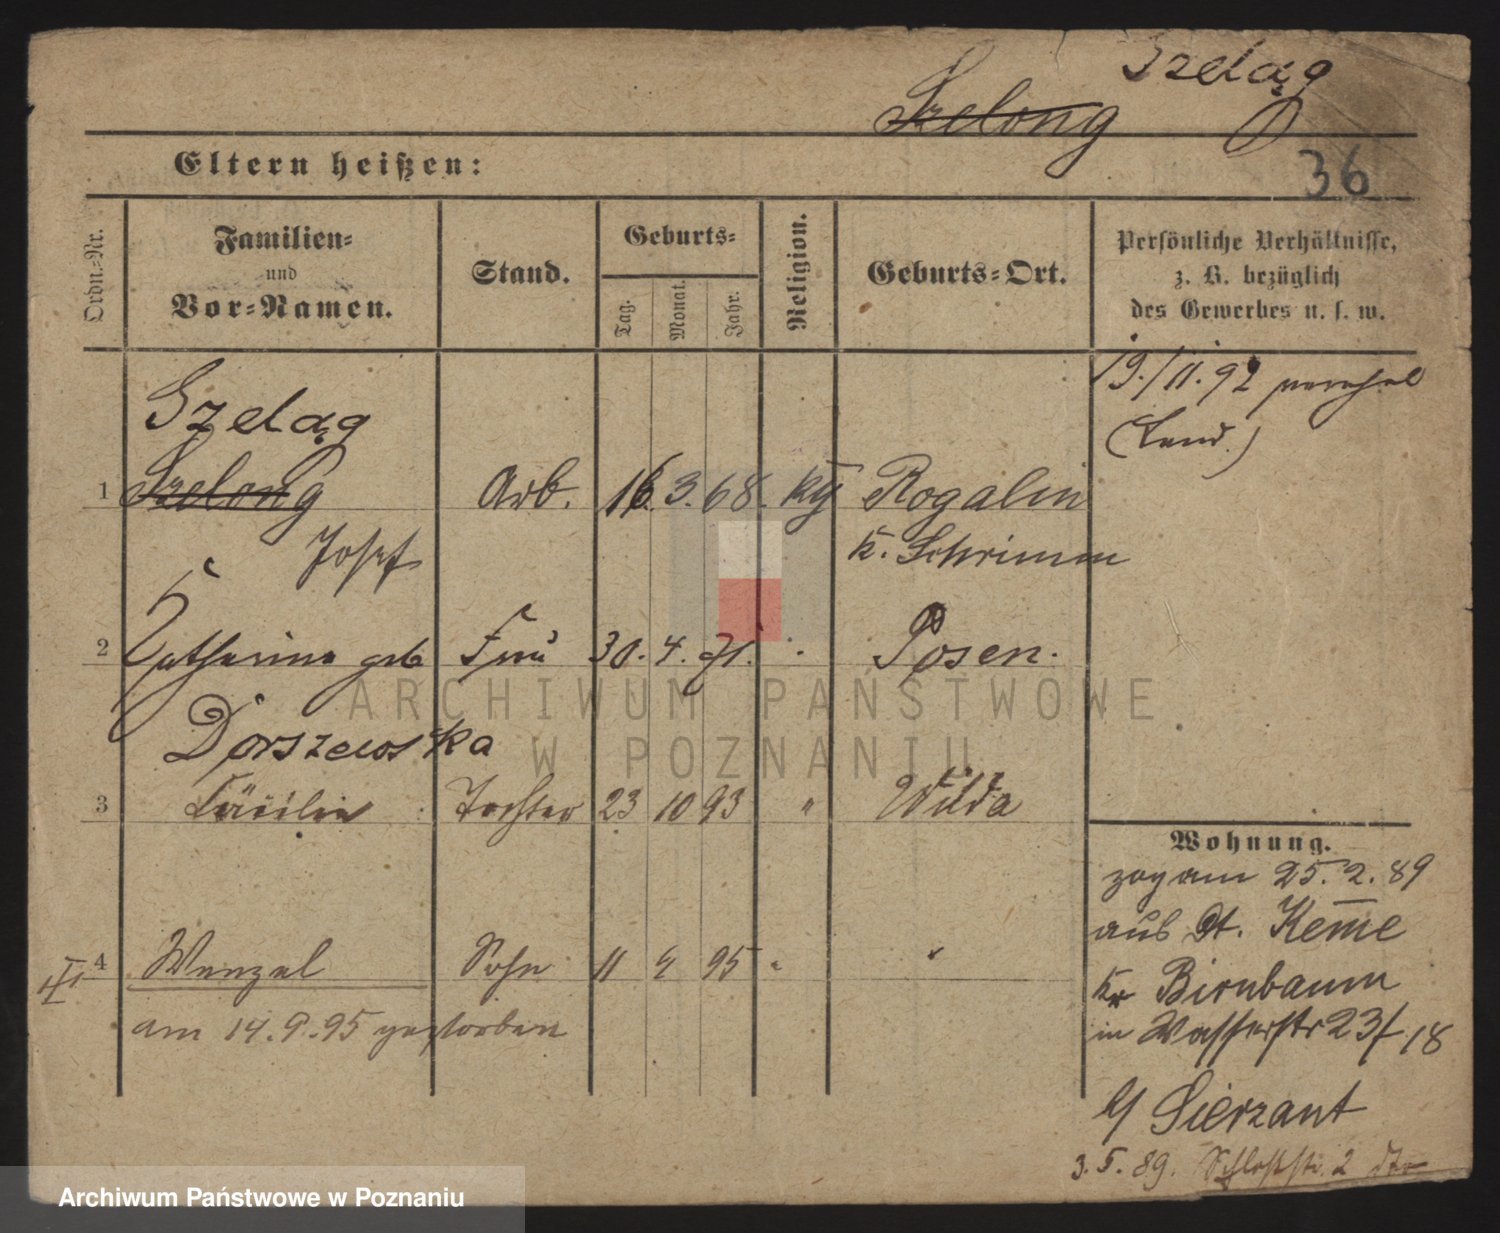 Szeląg
Szelong
Eltern heißen:
36
Ordn.-Nr.
Familien-
und
Vor-Namen.
Stand.
Geburts-
Tag.
Monat.
Jahr.
Religion.
Geburts-Ort.
Persönliche Verhältnisse,
z. B. bezüglich
des Gewerbes u. s. w.
19./11.92
(Land.)
Szeląg
1 Szelong Arb. 16. 3. 68. Rogalin
Josef K. Schrimm
2 Catharina geb Frau 30. 4. 71. Posen.
Dorszewska
3 Cäcilie Tochter 23 10 93 " Wilda
4 Wenzel Sohn 11 9 95 "
am 14.9.95 gestorben
Wohnung.
zog am 25.2.89
aus Dt. Keme
Kr Birnbaum
in Wasserstr 23/18
b/ Sierzant
3.5.89. Schloßstr. 2
ARCHIWUM PAŃSTWOWE
W POZNANIU
Archiwum Państwowe w Poznaniu